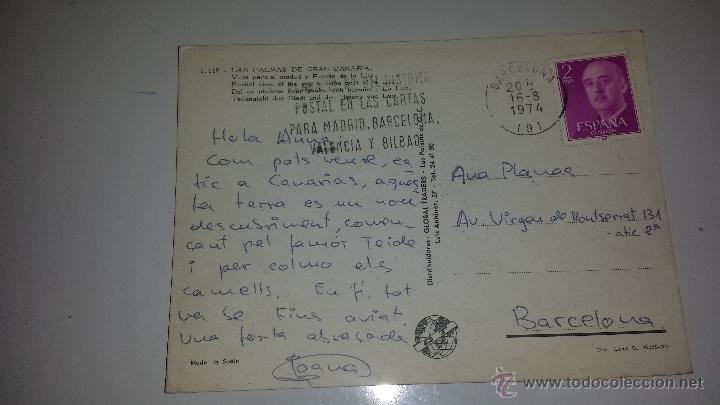 L.116 - LAS PALMAS DE GRAN CANARIA.
Vista parcial ciudad y Puerto de la Luz.
Partial view of the city and the port
Teilansicht der Stadt und des Hafens
DISTRITO
POSTAL EN LAS CARTAS
PARA MADRID, BARCELONA,
VALENCIA Y BILBAO
BARCELONA
20 H
16-8
1974
(9)
2
PTAS
ESPAÑA
CORREOS
Hola Anna:
Com pots veure, es
tic a Canarias, aques
ta terra es un nou
descubriment, comen-
çant pel famós Teide
i per colmo els
camells. En fi, tot
va be Fins aviat
una forta abraçada
Joana
Distribuidores: GLOBAL TRADERS - Las Palmas de G. C.
Luis Antúnez, 37 - Tel. 24 41 50
Ana Planas
Av. Virgen de Montserrat 131
-atic 2ª
Barcelona
Made in Spain
Dep. Legal B.
www.todocoleccion.net